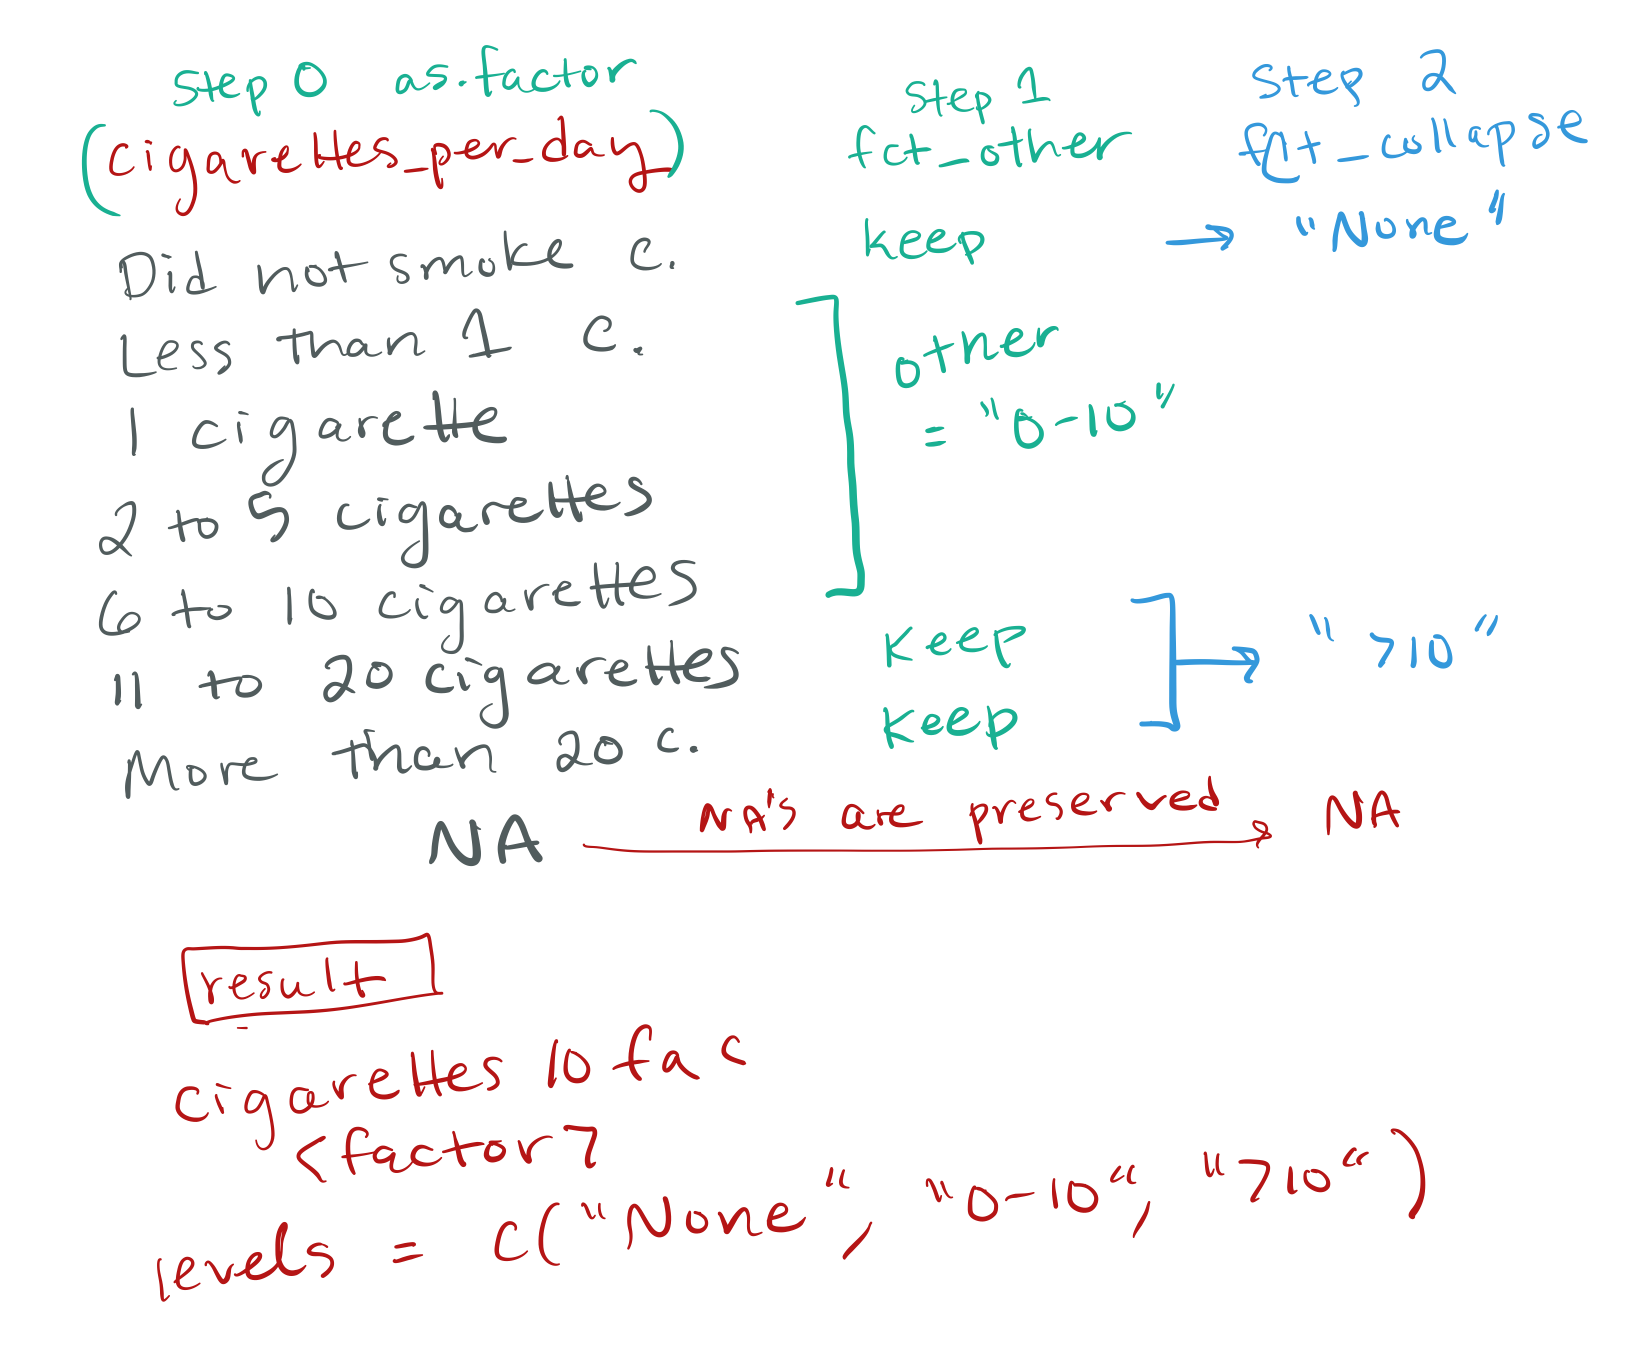 Step 0 as.factor
(cigarettes_per_day)
Step 1
fct_other
Step 2
fct_collapse
Did not smoke c.
keep → "None"
Less than 1 c.
1 cigarette
2 to 5 cigarettes
6 to 10 cigarettes
other
= "0-10"
11 to 20 cigarettes
keep
More than 20 c.
keep
→ ">10"
NA NA's are preserved NA
result
cigarettes 10 fac
<factor>
levels = c("None", "0-10", ">10")